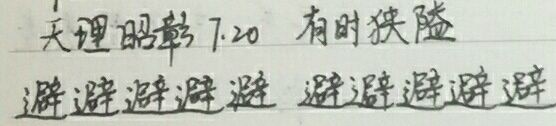 天理昭彰 7.20 有时狭隘
避避避避避 避避避避避